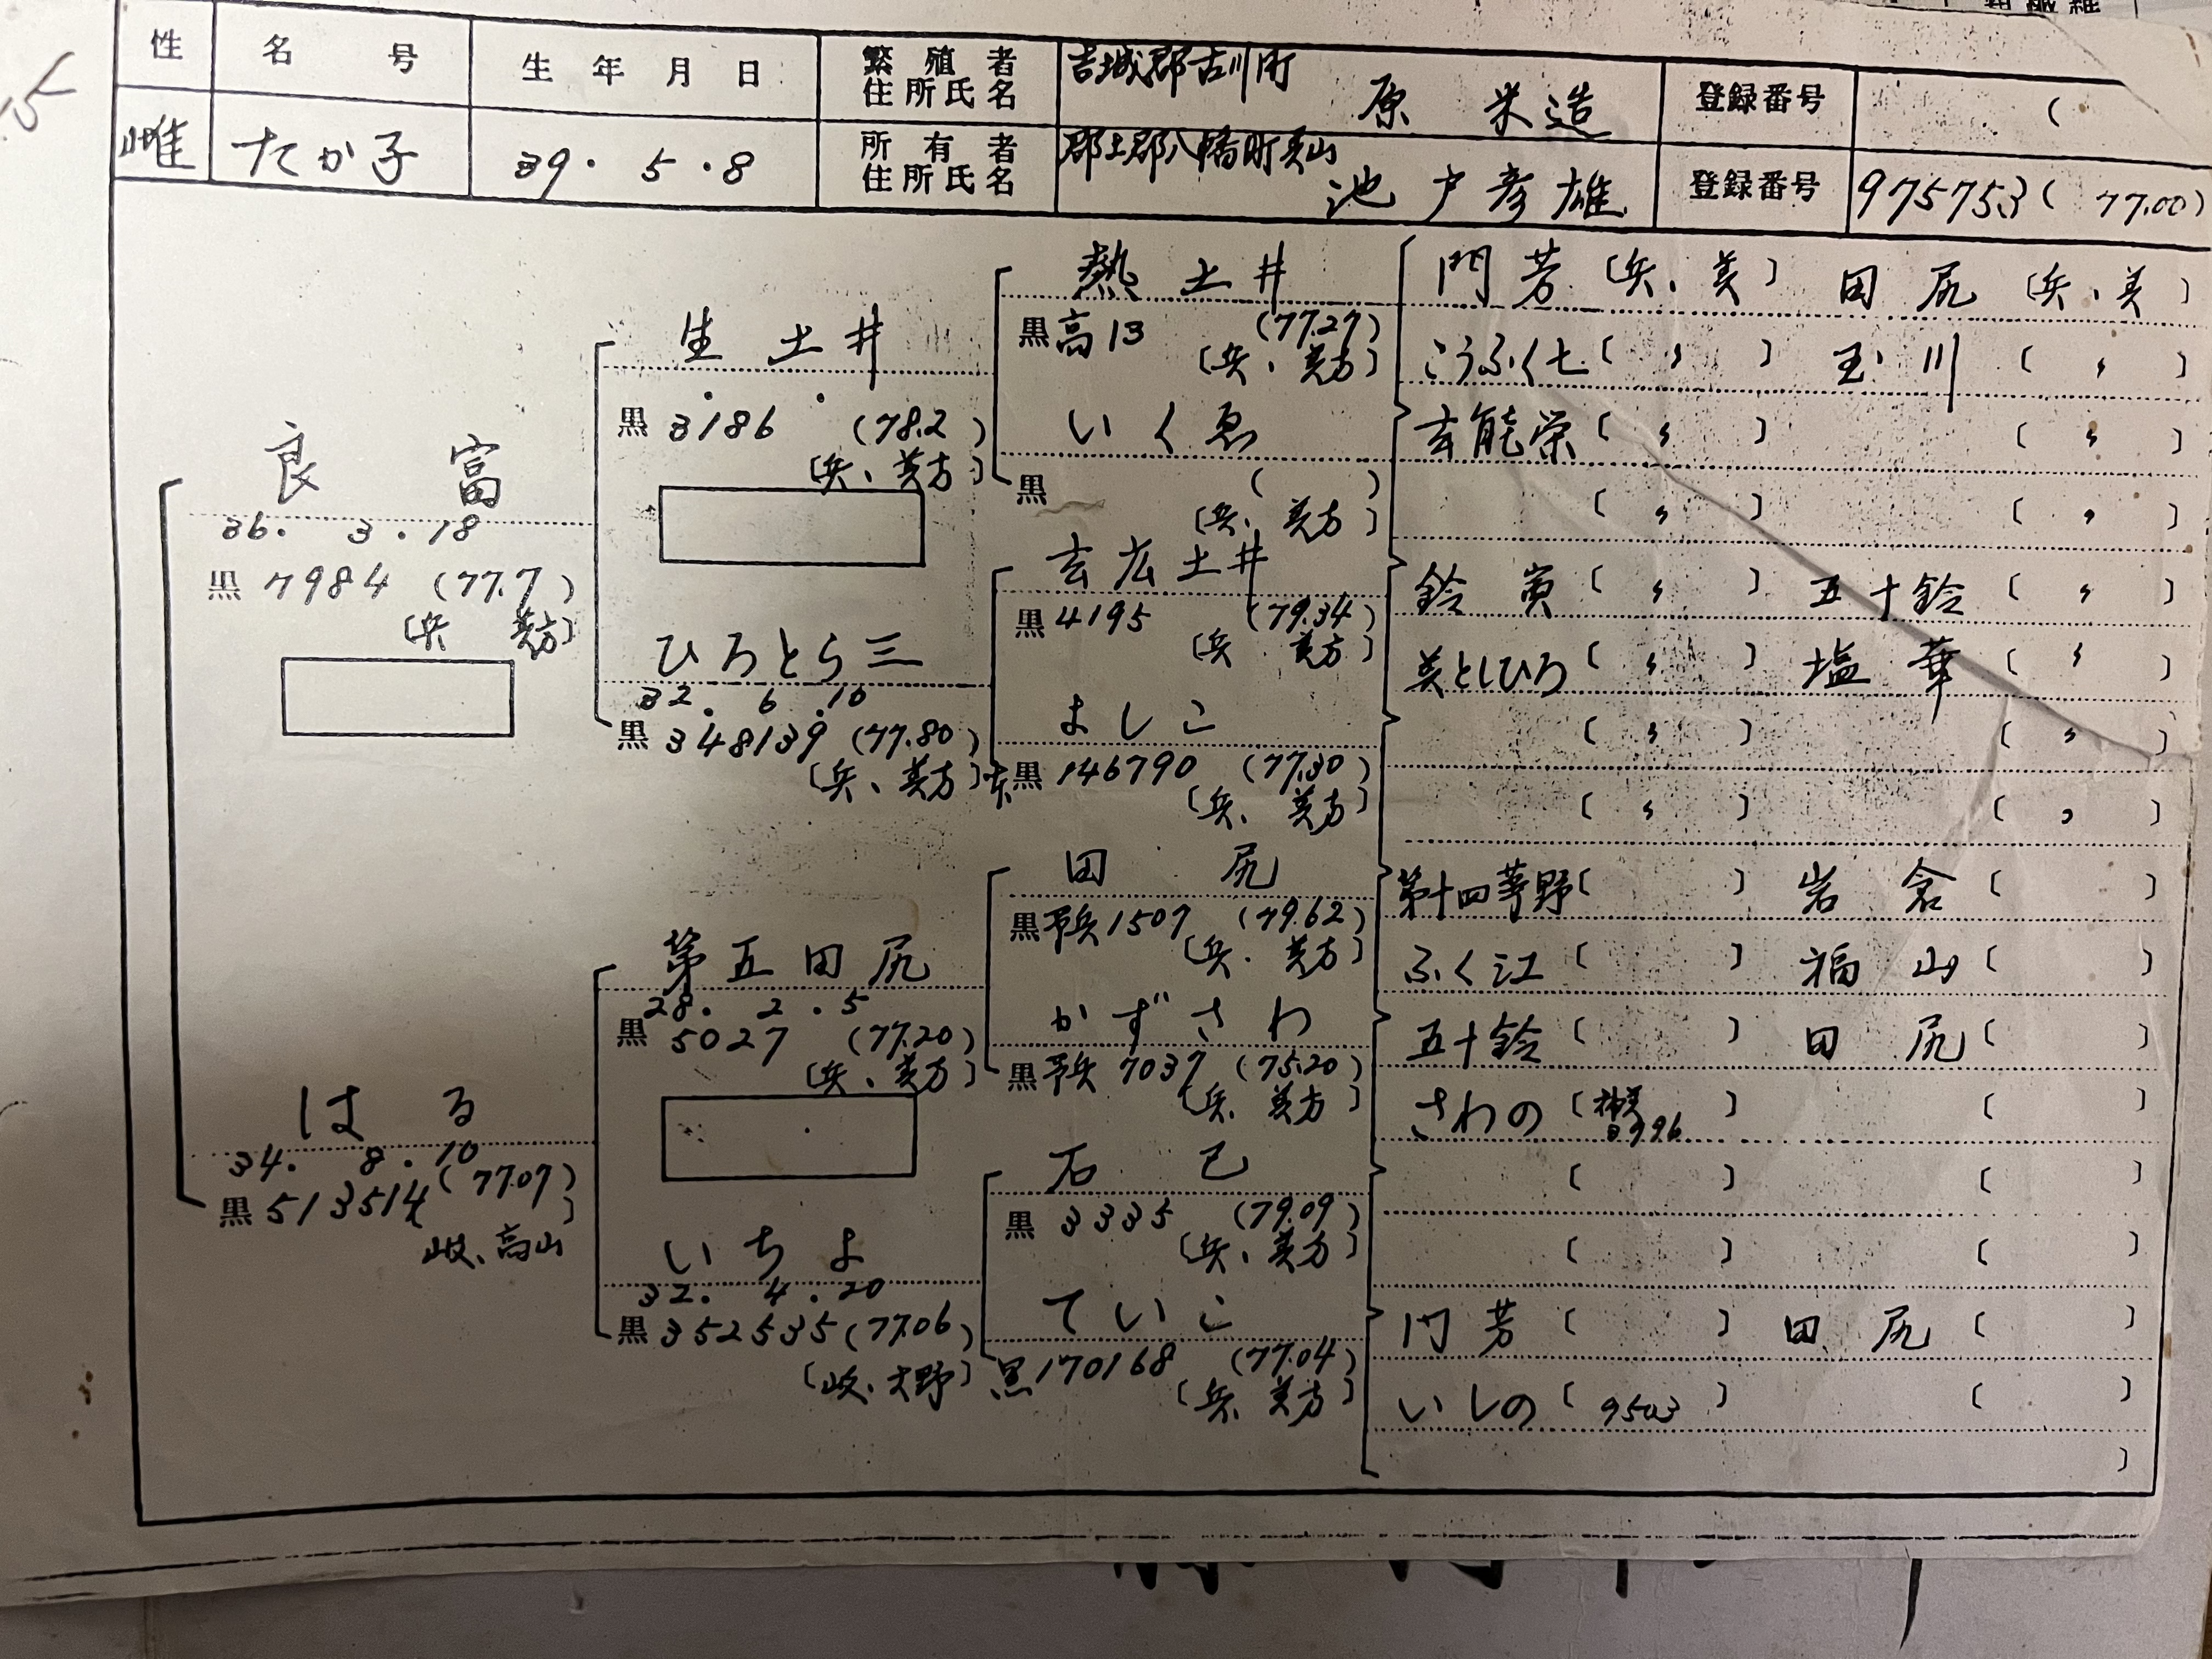 性 名号 生年月日 繁殖者住所氏名 吉城郡古川町 原 米造 登録番号 (
雌 たか子 39. 5. 8 所有者住所氏名 郡上郡八幡町美山 池戸彦雄 登録番号 975753 (77.00)
良 富
36. 3. 18
黒 7984 (77.7)
〔兵 美方〕
はる
34. 8. 10
黒 513514 (77.07)
岐、高山〕
生土井
黒 3186 (78.2)
〔兵、美方〕
ひろとら三
32. 6. 10
黒 348139 (77.80)
〔兵、美方〕
第五田尻
28. 2. 5
黒 5027 (77.20)
〔兵、美方〕
いちよ
32. 4. 20
黒 352535 (77.06)
〔岐、大野〕
熱土井
黒高13 (77.27)
〔兵、美方〕
いくゑ
黒 ( )
〔兵、美方〕
玄広土井
黒 4195 (79.34)
〔兵 美方〕
よしこ
本黒 146790 (77.30)
〔兵、美方〕
田尻
黒予兵1507 (79.62)
〔兵、美方〕
かずさわ
黒予兵 7037 (75.20)
〔兵、美方〕
石巳
黒 3335 (79.09)
〔兵、美方〕
ていこ
黒 170168 (77.04)
〔兵、美方〕
門芳〔兵、美〕 田尻〔兵、美〕
こうふく七〔 〃 〕 玉川〔 〃 〕
玄能栄〔 〃 〕 〔 〃 〕
〔 〃 〕 〔 〃 〕
鈴寅〔 〃 〕 五十鈴〔 〃 〕
美としひろ〔 〃 〕 塩華〔 〃 〕
〔 〃 〕 〔 〃 〕
〔 〃 〕 〔 〃 〕
第十四茅野〔 〕 岩倉〔 〕
ふく江〔 〕 福山〔 〕
五十鈴〔 〕 田尻〔 〕
さわの〔 〕 〔 〕
〔 〕 〔 〕
〔 〕 〔 〕
門芳〔 〕 田尻〔 〕
いしの〔 9503 〕 〔 〕
〕